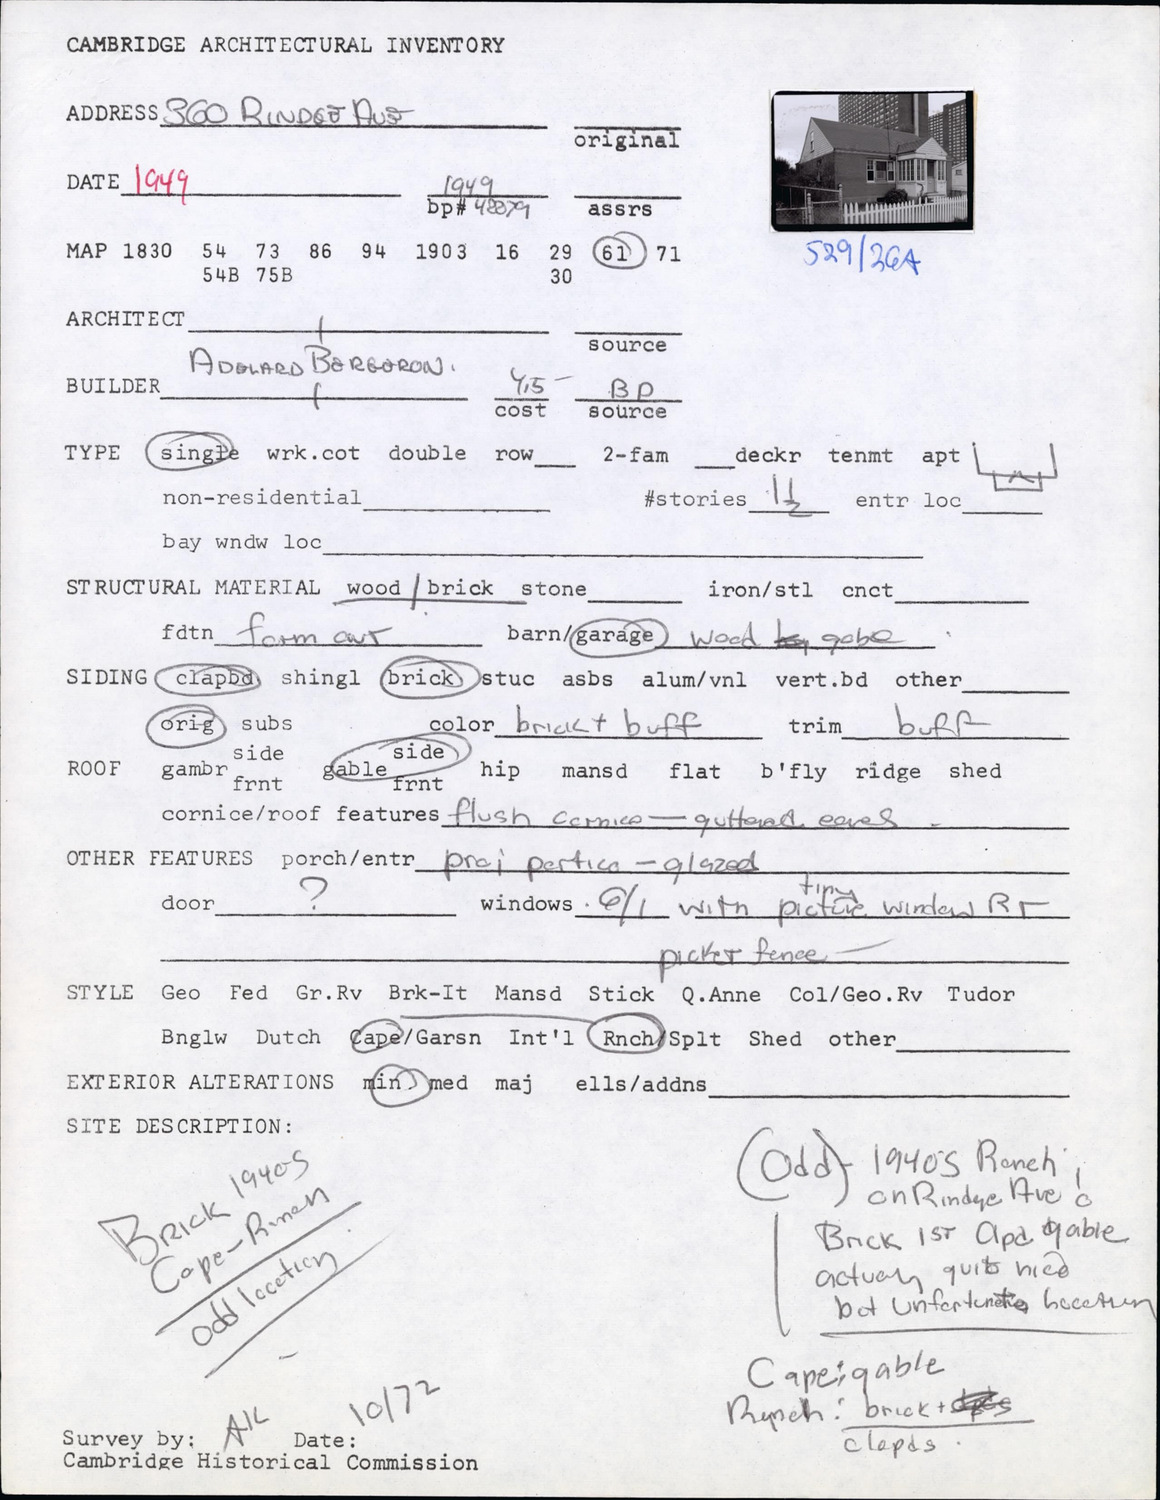 CAMBRIDGE ARCHITECTURAL INVENTORY
ADDRESS 360 RINDGE AVE
original
DATE 1949 1949
bp# 42879 assrs
529/26A
MAP 1830 54 73 86 94 1903 16 29 61 71
54B 75B 30
ARCHITECT
source
ADELARD BERGERON.
BUILDER 4,5 - BP
cost source
TYPE single wrk.cot double row 2-fam deckr tenmt apt
non-residential #stories 1½ entr loc
bay wndw loc
STRUCTURAL MATERIAL wood / brick stone iron/stl cnct
fdtn barn/garage wood gable
SIDING clapbd shingl brick stuc asbs alum/vnl vert.bd other
orig subs color brick + buff trim buff
side side
ROOF gambr gable hip mansd flat b'fly ridge shed
frnt frnt
cornice/roof features flush cornice — guttered eaves
OTHER FEATURES porch/entr proj portico — glazed
tiny
door ? windows 6/1 with picture window RT
picket fence —
STYLE Geo Fed Gr.Rv Brk-It Mansd Stick Q.Anne Col/Geo.Rv Tudor
Bnglw Dutch Cape/Garsn Int'l Rnch/Splt Shed other
EXTERIOR ALTERATIONS min med maj ells/addns
SITE DESCRIPTION:
BRICK 1940s
Cape-Ranch
odd location
(Odd) - 1940s Ranch
on Rindge Ave!
Brick 1st Clpd gable
actually quite nice
but Unfortunate location
Cape: gable
Ranch: brick +
clapds.
AK 10/72
Survey by: Date:
Cambridge Historical Commission